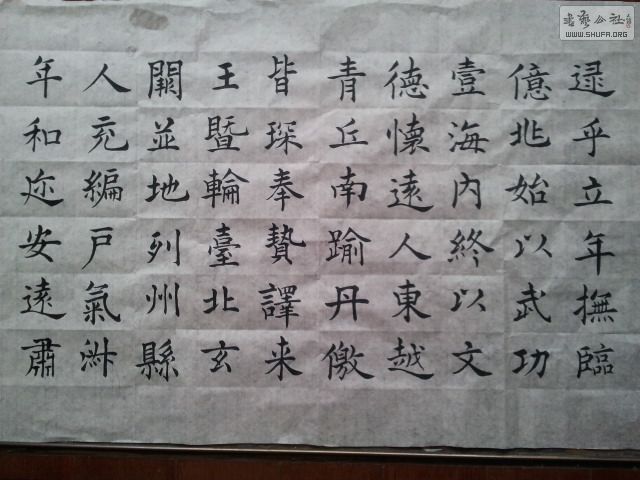 逮乎立年撫臨
億兆始以武功
壹海內終以文
德懷遠人東越
青丘南踰丹徼
皆琛奉贄譯来
王暨輪臺北玄
闕並地列州縣
人充編戶氣淑
年和迩安遠肅
书艺公社
WWW.SHUFA.ORG